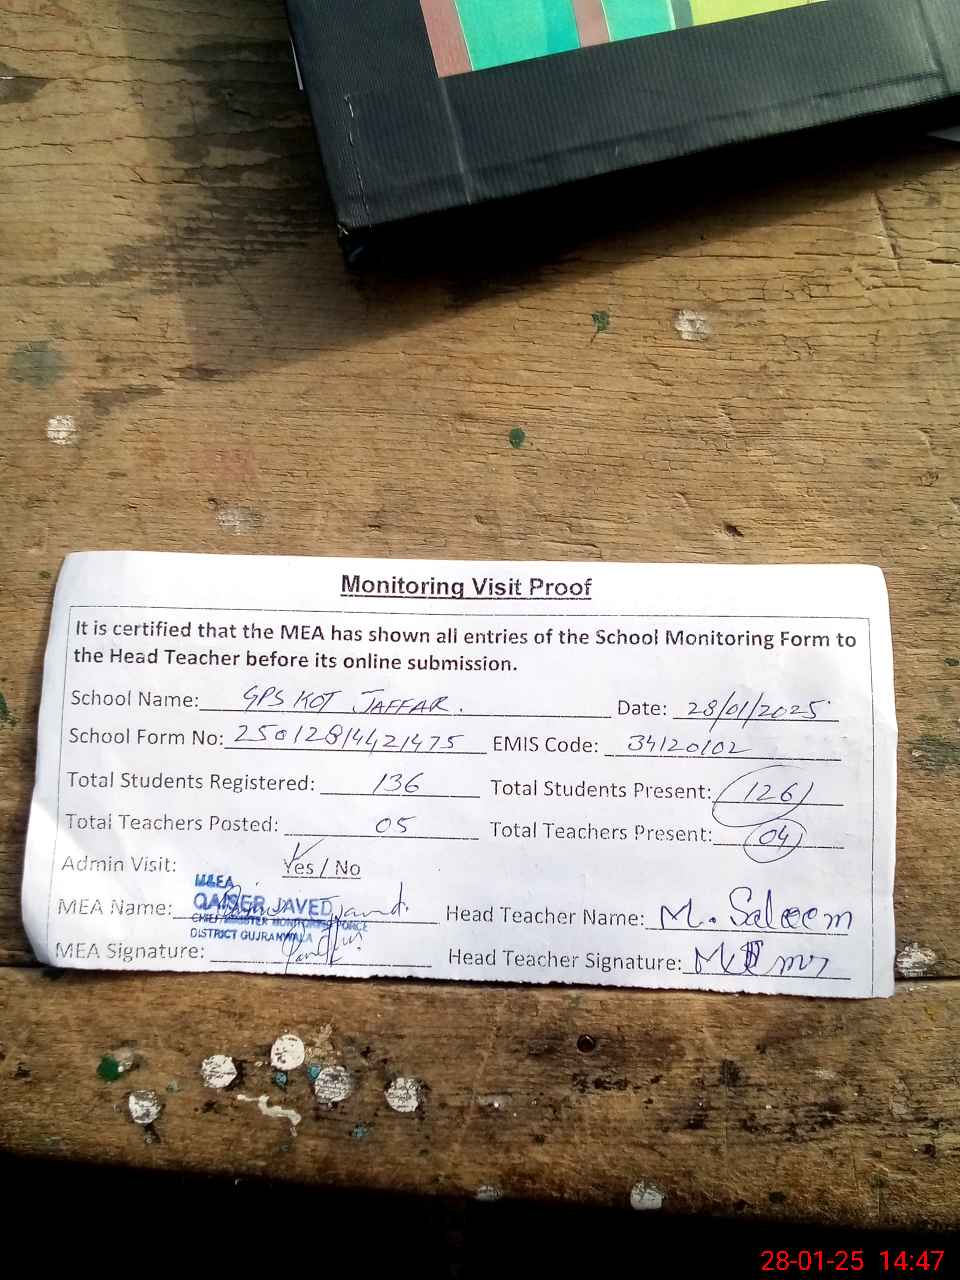 Monitoring Visit Proof
It is certified that the MEA has shown all entries of the School Monitoring Form to
the Head Teacher before its online submission.
School Name: GPS KOT JAFFAR. Date: 28/01/2025
School Form No: 25012814421475 EMIS Code: 34120102
Total Students Registered: 136 Total Students Present: 126
Total Teachers Posted: 05 Total Teachers Present: 04
Admin Visit: Yes / No
M&EA
MEA Name: QAISER JAVED Head Teacher Name: M. Saleem
CHIEF MINISTER MONITORING FORCE
DISTRICT GUJRANWALA
MEA Signature: Head Teacher Signature:
28-01-25 14:47